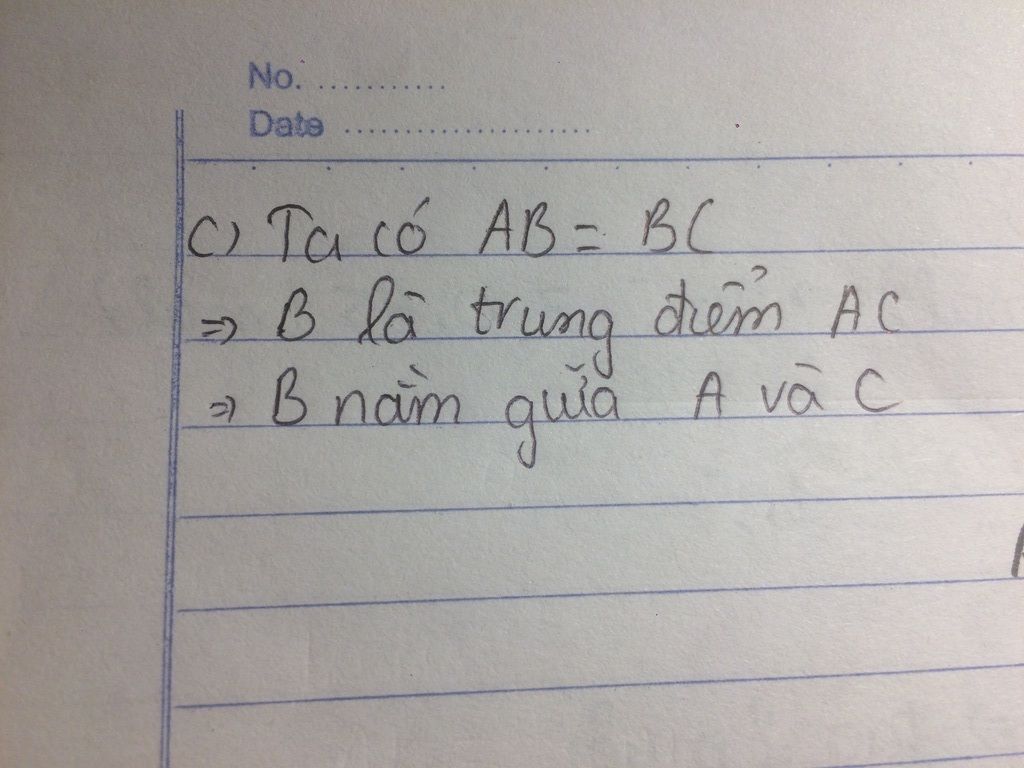 No. ...........
Date ......................
c) Ta có AB = BC
=> B là trung điểm AC
=> B nằm giữa A và C